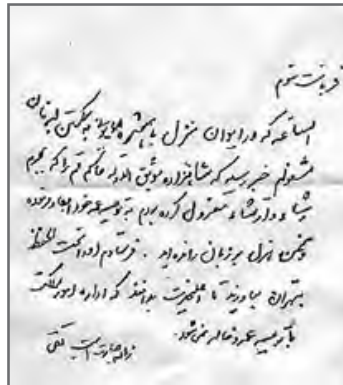 قربانت شوم
الساعه که در ایوان منزل با همشیره همایونی به شکستن لبه نان
مشغولم خبر رسید که شاهزاده موثق الدوله حاکم قم را که به جرم
رشاء و ارتشاء معزول کرده بودم به توصیه عمه خود ابقاء نموده
و سخن هزل بر زبان رانده‌اید . فرستادم او را تحت الحفظ
به تهران بیاورند تا اعلیحضرت بدانند که اداره امور مملکت
با توصیه عمه و خاله نمی‌شود .
زیاده جسارت است تقی